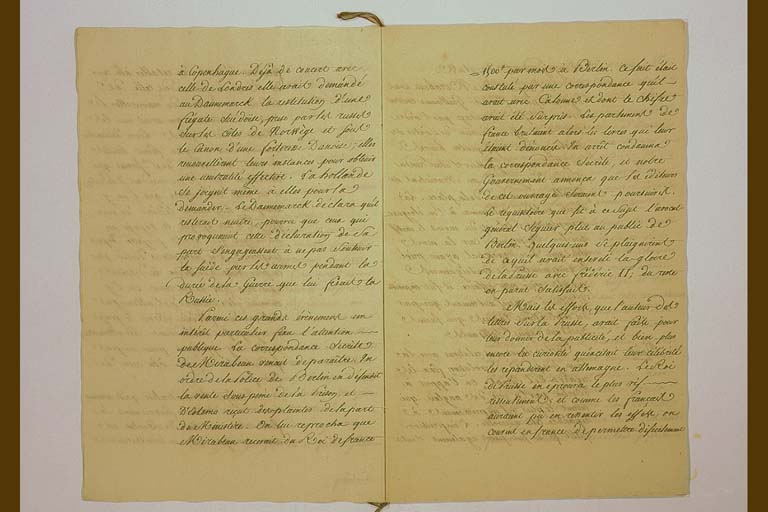 à Copenhague. Déjà de concert avec
celle de Londres elle avait demandé
au Dannemarck la restitution d'une
frégate suédoise, prise par les russes
sur les côtes de Norwège et sous
le canon d'une forteresse Danoise; elles
renouvellèrent leurs instances pour obtenir
une neutralité effective. La hollande
se joignit même à elles pour la
demander. Le Dannemarck déclara qu'il
resterait neutre, pourvu que ceux qui
provoquaient cette déclaration de sa
part s'engageassent à ne pas soutenir
la suède par les armes pendant la
durée de la Guerre que lui ferait la
Russie.
Parmi ces grands évènemens un
intérêt particulier fixa l'attention
publique. La correspondance Secrète
de Mirabeau venait de paraître. Un
ordre de la Police de Berlin en défendit
la vente sous peine de la Prison, et
reçut des plaintes de la part
du Ministère. On lui reprocha que
Mirabeau recevait du Roi de france
1500# par mois à Berlin. Ce fait était
constaté par une correspondance qu'il
avait avec Calonne et dont le chiffre
avait été surpris. Les parlemens de
france brulaient alors les livres que leur
dénonçés. Un arrêt condamna
la correspondance Secrète, et notre
Gouvernement annonça que les éditeurs
de cet ouvrage seraient poursuivis.
Le requisitoire que fit à ce sujet l'avocat
général Séguier plut au public de
Berlin. Quelques-uns se plaignirent
de ce qu'il avait enseveli la gloire
de la Prusse avec frédéric II; du reste
on parut satisfait.
Mais les efforts, que l'auteur des
lettres sur la Prusse, avait faits pour
leur donner de la publicité, et bien plus
encore la curiosité qu'excitait leur célébrité
les répandirent en allemagne. Le Roi
de Prusse en éprouva le plus vif
ressentiment, et comme les français
auraient pû en ressentir les effets, on
convint en france de permettre discrètement